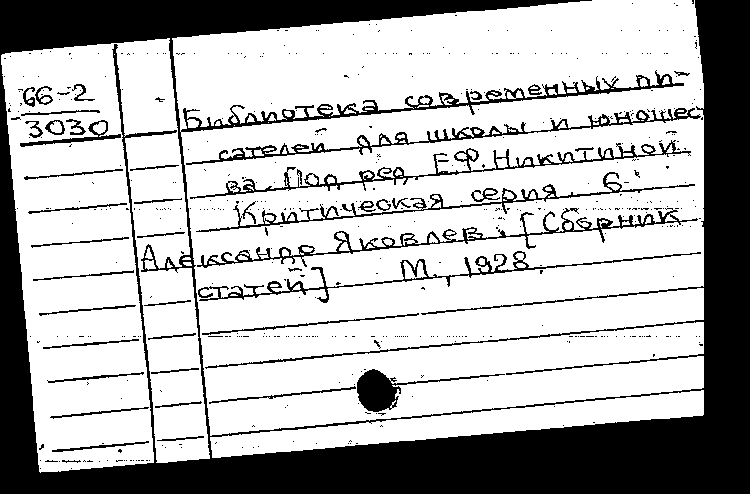 66-2
3030
Библиотека современных пи-
сателей для школы и юношест
ва. Под ред. Е.Ф. Никитиной.
Критическая серия. 6:
Александр Яковлев. [Сборник
статей]. М., 1928.